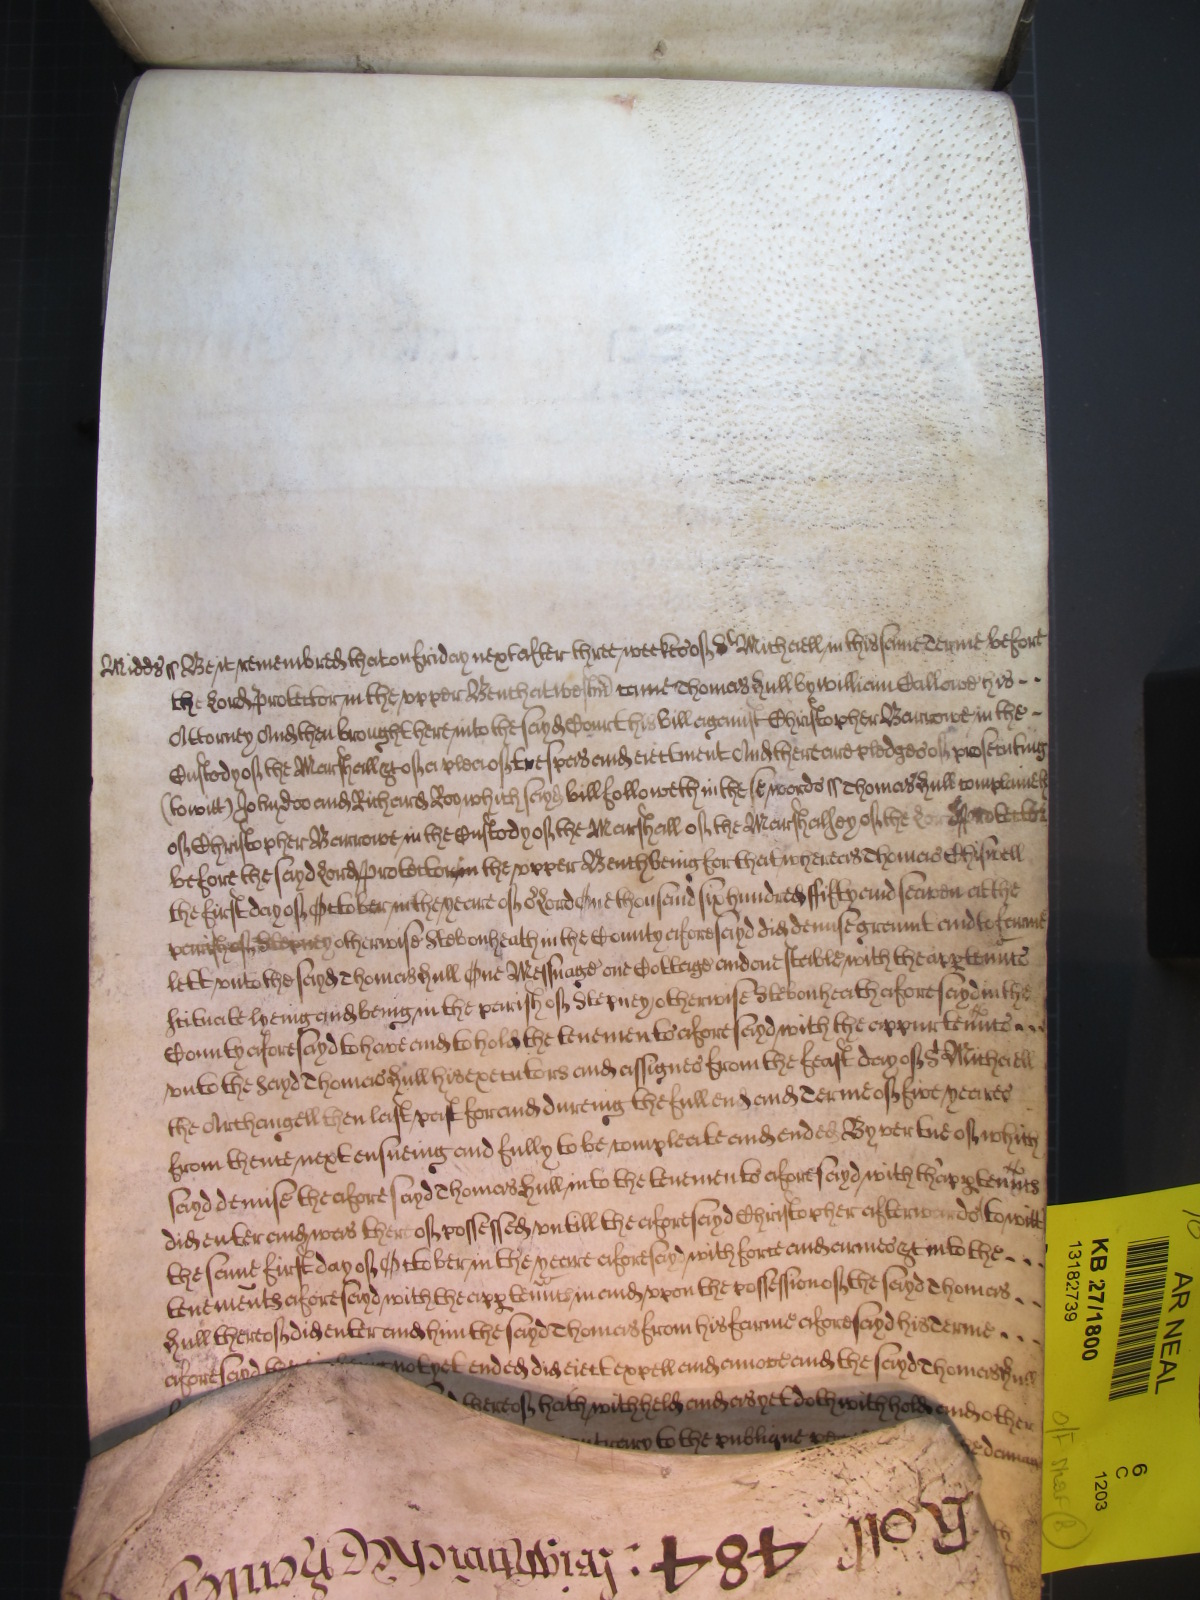 Midds ss Be it remembred that on friday next after three weekes of St Michaell in this same Terme before
the Lord Protector in the upper Bench at Westmr came Thomas Hull by William Callowe his - -
Attorney And then brought here into the sayd Court his bill against Christopher Barrowe in the -
Custody of the Marshall &c of a plea of trespas and eiectment And there are pledges of prosecuting
(to witt) John doo and Richard Roo which sayd bill followeth in these words ss Thomas Hull complaineth
of Christopher Barrowe in the Custody of the Marshall of the Marshalsey of the Lord Protector
before the sayd Lord Protector in the upper Bench being for that whereas Thomas Chisnell
the first day of October in the yeare of or Lord One thousand six hundred fifty and seaven at the
parish of Stepney otherwise Stebonheath in the County aforesayd did demise graunt and to farme
lett unto the sayd Thomas Hull One Messuage one Cottage and one stable with the apptennts
scituate lyeing and being in the parish of Stepney otherwise Stebonheath aforesayd in the
County aforesayd to have and to hold the tenements aforesayd with the appurtennts - - -
unto the sayd Thomas Hull his executors and assignes from the feast day of St Michaell
the Archangell then last past for and dureing the full end and Terme of five yeares
from thence next ensueing and fully to be compleate and ended By vertue of which
sayd demise the aforesayd Thomas Hull into the tenements aforesayd with thapptennts
did enter and was thereof possessed untill the aforesayd Christopher afterwards (to witt
the same first day of October in the yeare aforesayd with force and armes &c into the - - -
tenements aforesayd with the apptennts in and upon the possession of the sayd Thomas - -
Hull thereof did enter and him the sayd Thomas from his farme aforesayd his Terme - - -
aforesayd not yet ended did eiect expell and amove and the sayd Thomas Hull
thereof hath withheld and as yet doth withhold and other
contrary to the publique
Roll 484:
AR NEAL
KB 27/1800
13182739
6
C
1203